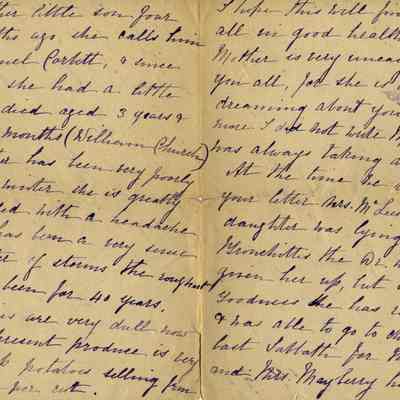 her little son four
ths ago she calls him
uel Corbett, & since
she had a little
died aged 3 years &
months (William Church)
er has been very poorly
winter she is greatly
ed with a headache
has been a very severe
er of storms the roughest
been for 40 years.
is are very dull now
present produce is very
p potatoes selling from
per cwt.
I hope this will fin
all in good health
Mother is very uneas
you all, for she is
dreaming about you
more I did not write
was always taking a
At the time he
your letter Mrs. Mc
daughter was lying
Bronchittis the Dr.
given her up, but
Goodness she has
& was able to go to ch
last Sabbath for
and Mrs. Mayberry h